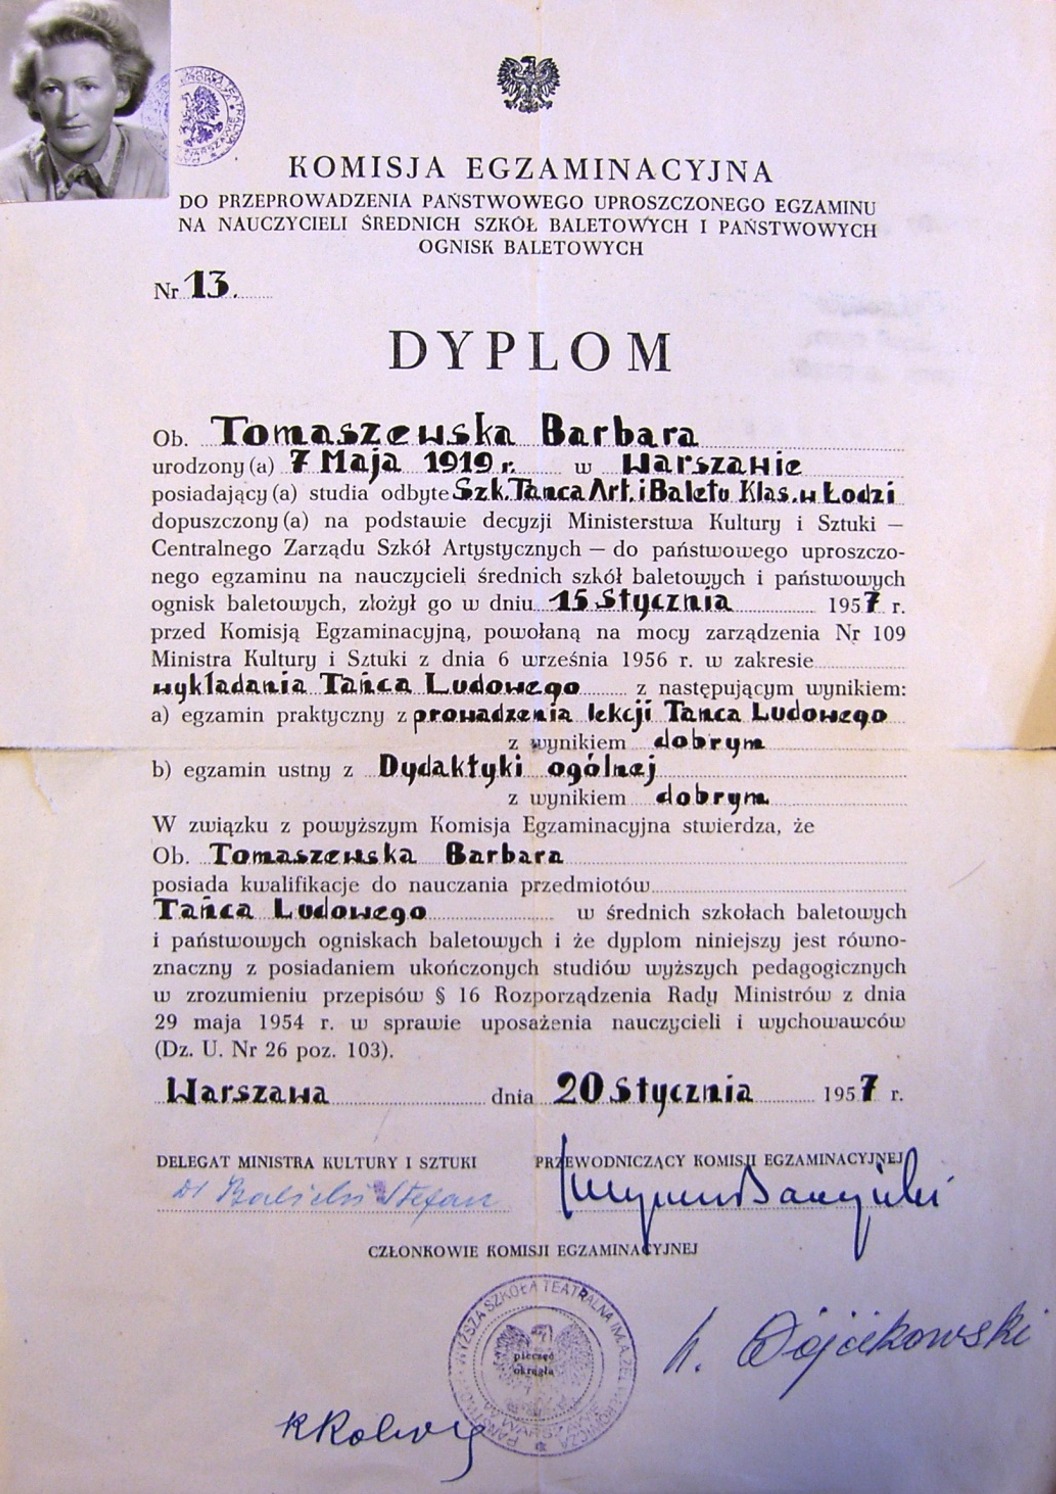 KOMISJA EGZAMINACYJNA
DO PRZEPROWADZENIA PAŃSTWOWEGO UPROSZCZONEGO EGZAMINU
NA NAUCZYCIELI ŚREDNICH SZKÓŁ BALETOWYCH I PAŃSTWOWYCH
OGNISK BALETOWYCH
Nr 13.
DYPLOM
Ob. Tomaszewska Barbara
urodzony (a) 7 Maja 1919 r. w Warszawie
posiadający (a) studia odbyte Szk. Tańca Art. i Baletu Klas. w Łodzi
dopuszczony (a) na podstawie decyzji Ministerstwa Kultury i Sztuki —
Centralnego Zarządu Szkół Artystycznych — do państwowego uproszczo-
nego egzaminu na nauczycieli średnich szkół baletowych i państwowych
ognisk baletowych, złożył go w dniu 15 Stycznia 1957 r.
przed Komisją Egzaminacyjną, powołaną na mocy zarządzenia Nr 109
Ministra Kultury i Sztuki z dnia 6 września 1956 r. w zakresie
wykładania Tańca Ludowego z następującym wynikiem:
a) egzamin praktyczny z prowadzenia lekcji Tańca Ludowego
z wynikiem dobrym
b) egzamin ustny z Dydaktyki ogólnej
z wynikiem dobrym
W związku z powyższym Komisja Egzaminacyjna stwierdza, że
Ob. Tomaszewska Barbara
posiada kwalifikacje do nauczania przedmiotów
Tańca Ludowego w średnich szkołach baletowych
i państwowych ogniskach baletowych i że dyplom niniejszy jest równo-
znaczny z posiadaniem ukończonych studiów wyższych pedagogicznych
w zrozumieniu przepisów § 16 Rozporządzenia Rady Ministrów z dnia
29 maja 1954 r. w sprawie uposażenia nauczycieli i wychowawców
(Dz. U. Nr 26 poz. 103).
Warszawa dnia 20 Stycznia 1957 r.
DELEGAT MINISTRA KULTURY I SZTUKI PRZEWODNICZĄCY KOMISJI EGZAMINACYJNEJ
Dr Stefan
CZŁONKOWIE KOMISJI EGZAMINACYJNEJ
WYŻSZA SZKOŁA TEATRALNA IM. A. ZELWEROWICZA
pieczęć
okrągła
Wójcikowski